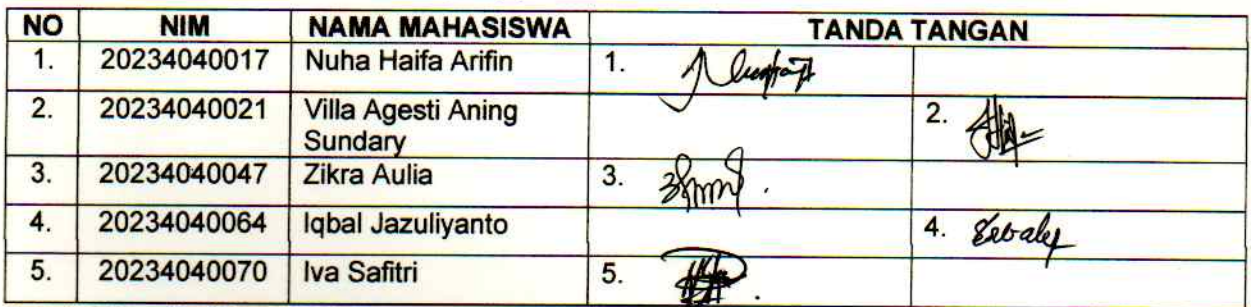 NO NIM NAMA MAHASISWA TANDA TANGAN
1. 20234040017 Nuha Haifa Arifin 1.
2. 20234040021 Villa Agesti Aning 2.
Sundary
3. 20234040047 Zikra Aulia 3.
4. 20234040064 Iqbal Jazuliyanto 4.
5. 20234040070 Iva Safitri 5.